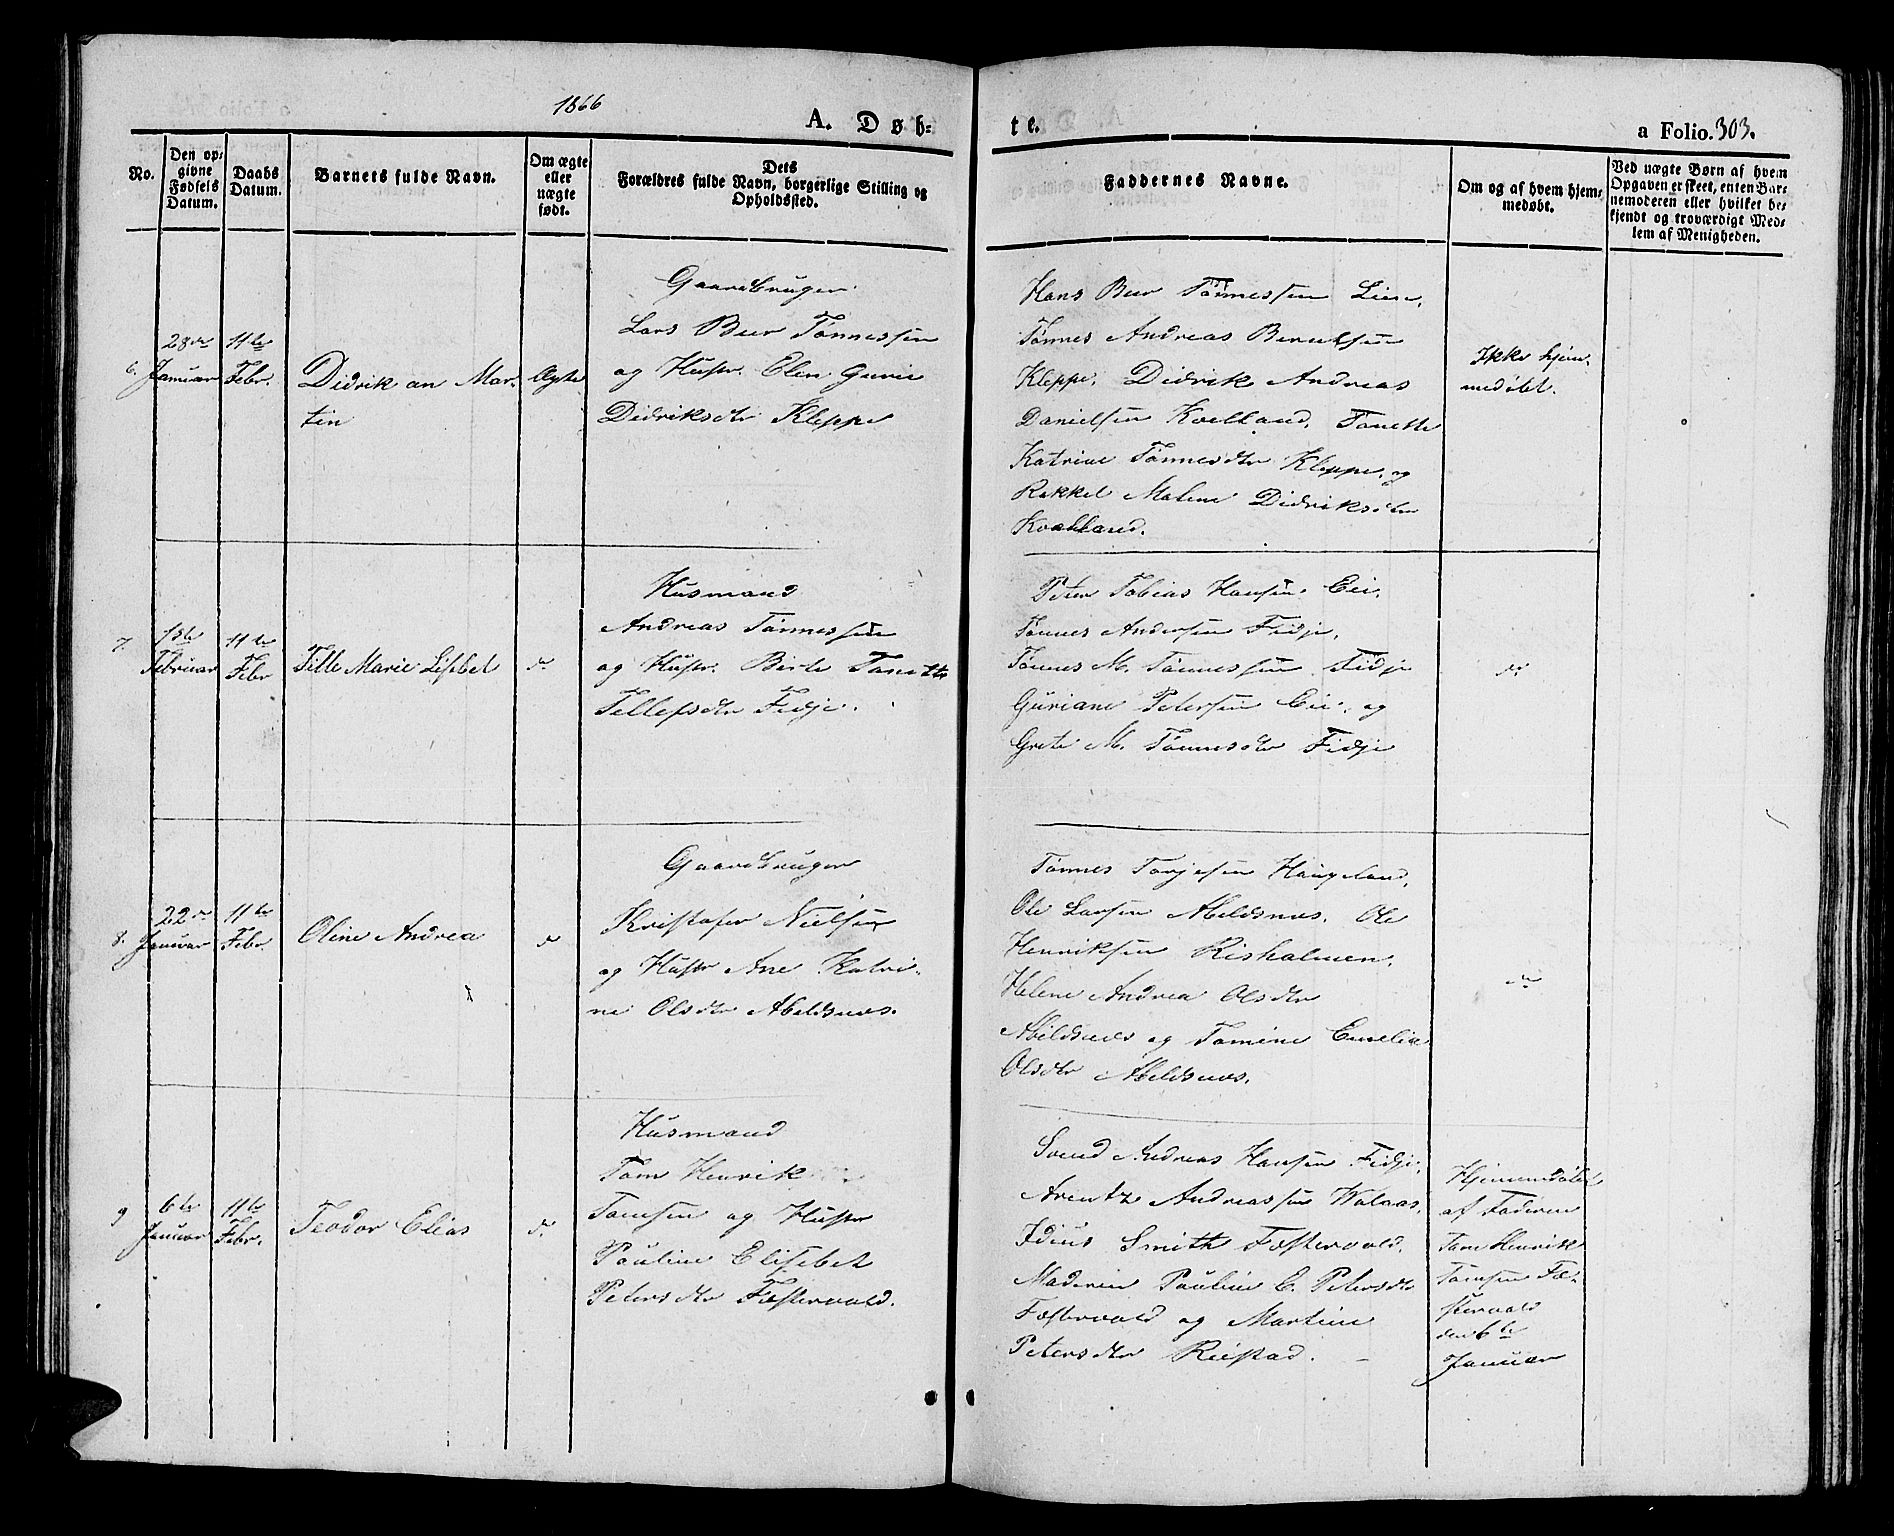 1866
A. Døb=
te.
a Folio. 303.
No.
Den op=
givne
Fødsels
Datum.
Daabs
Datum.
Barnets fulde Navn.
Om ægte
eller
uægte
født.
Dets
Forældres fulde Navn, borgerlige Stilling og
Opholdssted.
Faddernes Navne.
Om og af hvem hjem=
medøbt.
Ved uægte Børn af hvem
Opgaven er skeet, enten Bar=
nemoderen eller hvilket be=
kjendt og troværdigt Med=
lem af Menigheden.
6.
28de
Januar
11te
Febr.
Didrik an Mar-
tin
Ægte
Gaardbruger
Lars Beer Tønnessen
og Hustr. Elen Gurie
Didriksdtr Kleppe
Hans Beer Tønnessen Lien,
Tønnes Andreas Berntsen
Kleppe, Didrik Andreas
Danielsen Kvelland, Tanette
Katrine Tønnesdtr Kleppe, og
Rakkel Malene Didriksdtr
Kvelland.
Ikke hjem-
medøbt.
7.
1ste
Februar
11te
Febr
Tille Marie Lisebet
do
Husmand
Andreas Tønnessen
og Hustr. Birte Tanette
Tellefsdtr Fidje.
Peter Tobias Hansen Eie,
Tønnes Andersen Fidje,
Tønnes M. Tønnessen Fidje
Guriane Petersen Eie, og
Grete M. Tønnesdtr Fidje
do
8.
22de
Januar
11te
Febr.
Oline Andrea
do
Gaardbruger
Kristofer Nielsen
og Hustr Ane Katri-
ne Olsdtr Abeldsnes.
Tønnes Torjesen Haugeland,
Ole Larsen Abeldsnes, Ole
Henriksen Risholmen,
Helene Andrea Olsdtr
Abeldsnes og Tomine Emelie
Olsdtr Abeldsnes.
do
9
6te
Januar
11te
Febr.
Teodor Elias
do
Husmand
Tom Henrik
Tomsen og Hustr
Pauline Elisebet
Petersdtr Fæstervold.
Svend Andreas Hansen Fidje,
Arentz Andreassen Walaas,
Smith Fæstervold,
Moderen Pauline E. Petersdtr
Fæstervold og Martine
Petersdtr Reistad.
Hjemmedøbt
af Faderen
Tom Henrik
Tomsen Fæ-
stervold
den 6te
Januar